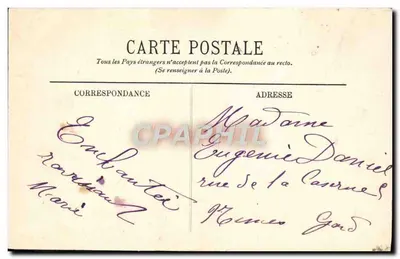 CARTE POSTALE
Tous les Pays étrangers n'acceptent pas la Correspondance au recto.
(Se renseigner à la Poste).
CORRESPONDANCE
ADRESSE
Enchantée
Marie
Madame
Eugenie Daniel
rue de la Caserne
Nimes Gard
CPArama.com